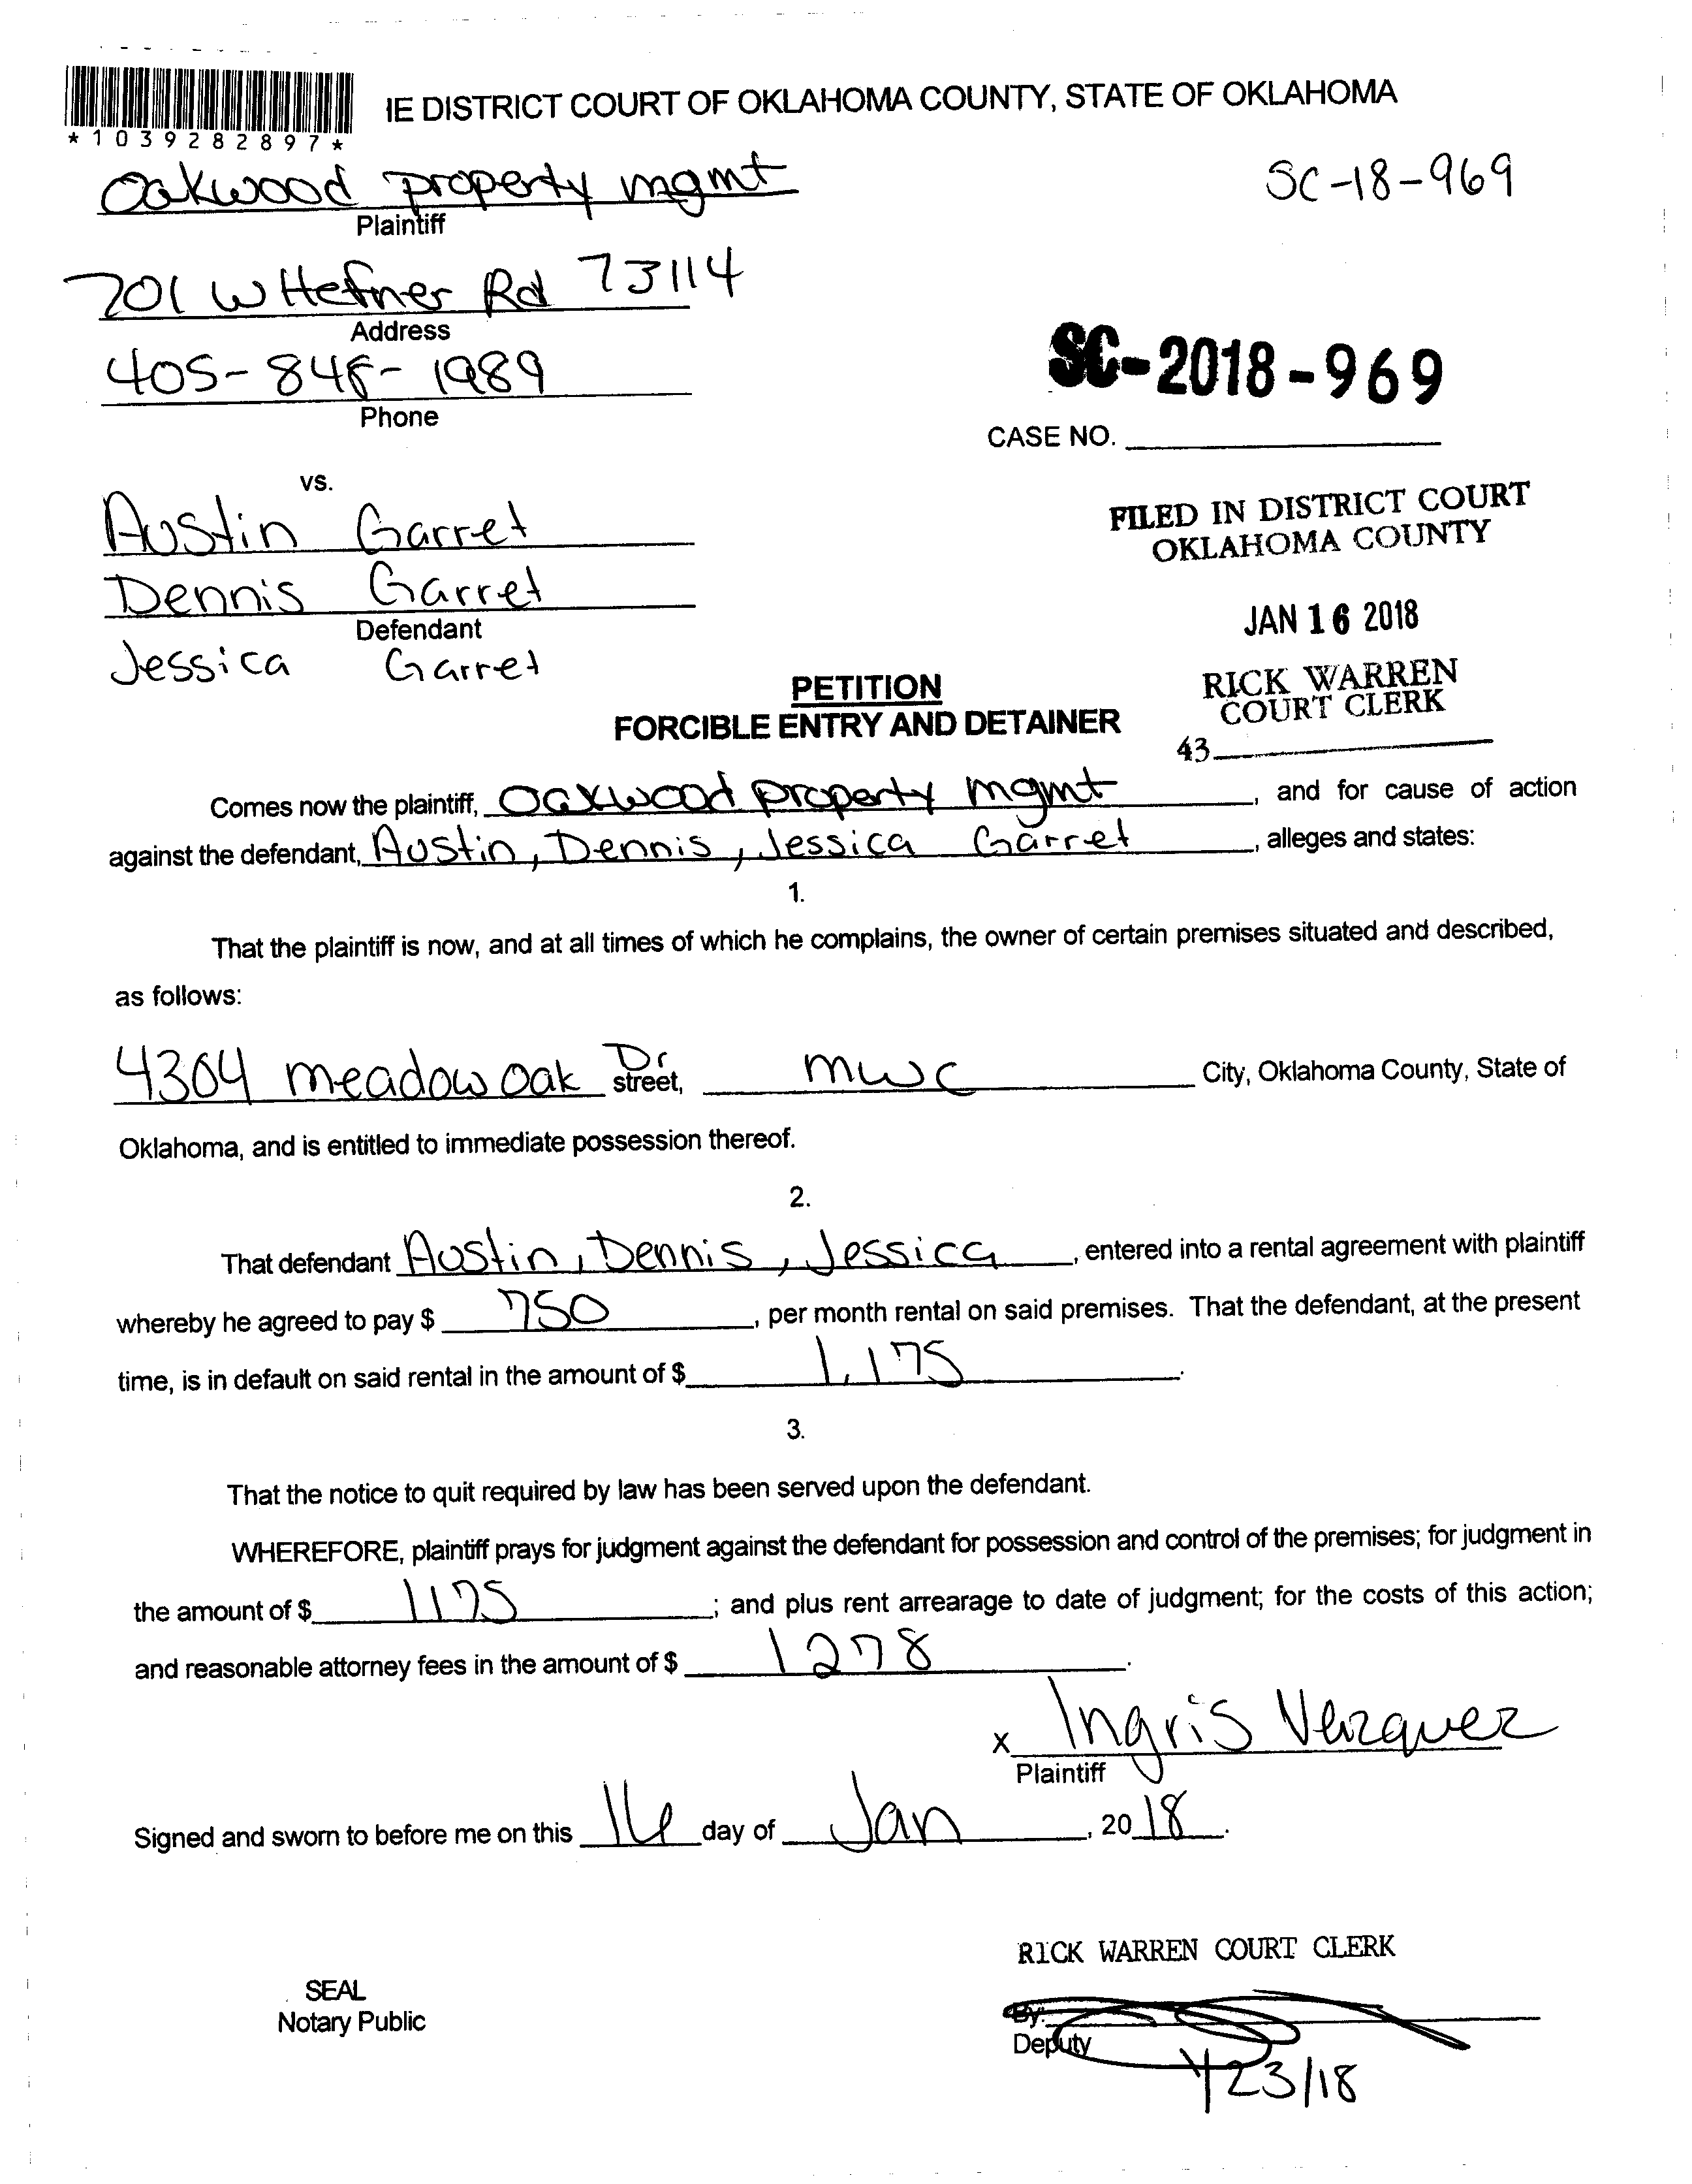 IE DISTRICT COURT OF OKLAHOMA COUNTY, STATE OF OKLAHOMA
*1039282897*
Oakwood property mgmt
Plaintiff
SC-18-969
701 W Hefner Rd 73114
Address
405-848-1989
Phone
SC-2018-969
CASE NO.
vs.
Austin Garret
Dennis Garret
Defendant
Jessica Garret
FILED IN DISTRICT COURT
OKLAHOMA COUNTY
JAN 16 2018
RICK WARREN
COURT CLERK
43
PETITION
FORCIBLE ENTRY AND DETAINER
Comes now the plaintiff, Oakwood property mgmt, and for cause of action
against the defendant, Austin, Dennis, Jessica Garret, alleges and states:
1.
That the plaintiff is now, and at all times of which he complains, the owner of certain premises situated and described,
as follows:
4304 meadow oak Dr street, mwc City, Oklahoma County, State of
Oklahoma, and is entitled to immediate possession thereof.
2.
That defendant Austin, Dennis, Jessica, entered into a rental agreement with plaintiff
whereby he agreed to pay $ 750, per month rental on said premises. That the defendant, at the present
time, is in default on said rental in the amount of $ 1,175.
3.
That the notice to quit required by law has been served upon the defendant.
WHEREFORE, plaintiff prays for judgment against the defendant for possession and control of the premises; for judgment in
the amount of $ 1175; and plus rent arrearage to date of judgment; for the costs of this action;
and reasonable attorney fees in the amount of $ 1278.
x Ingris Vazquez
Plaintiff
Signed and sworn to before me on this 16 day of Jan, 20 18.
RICK WARREN COURT CLERK
SEAL
Notary Public
By:
Deputy
1/23/18